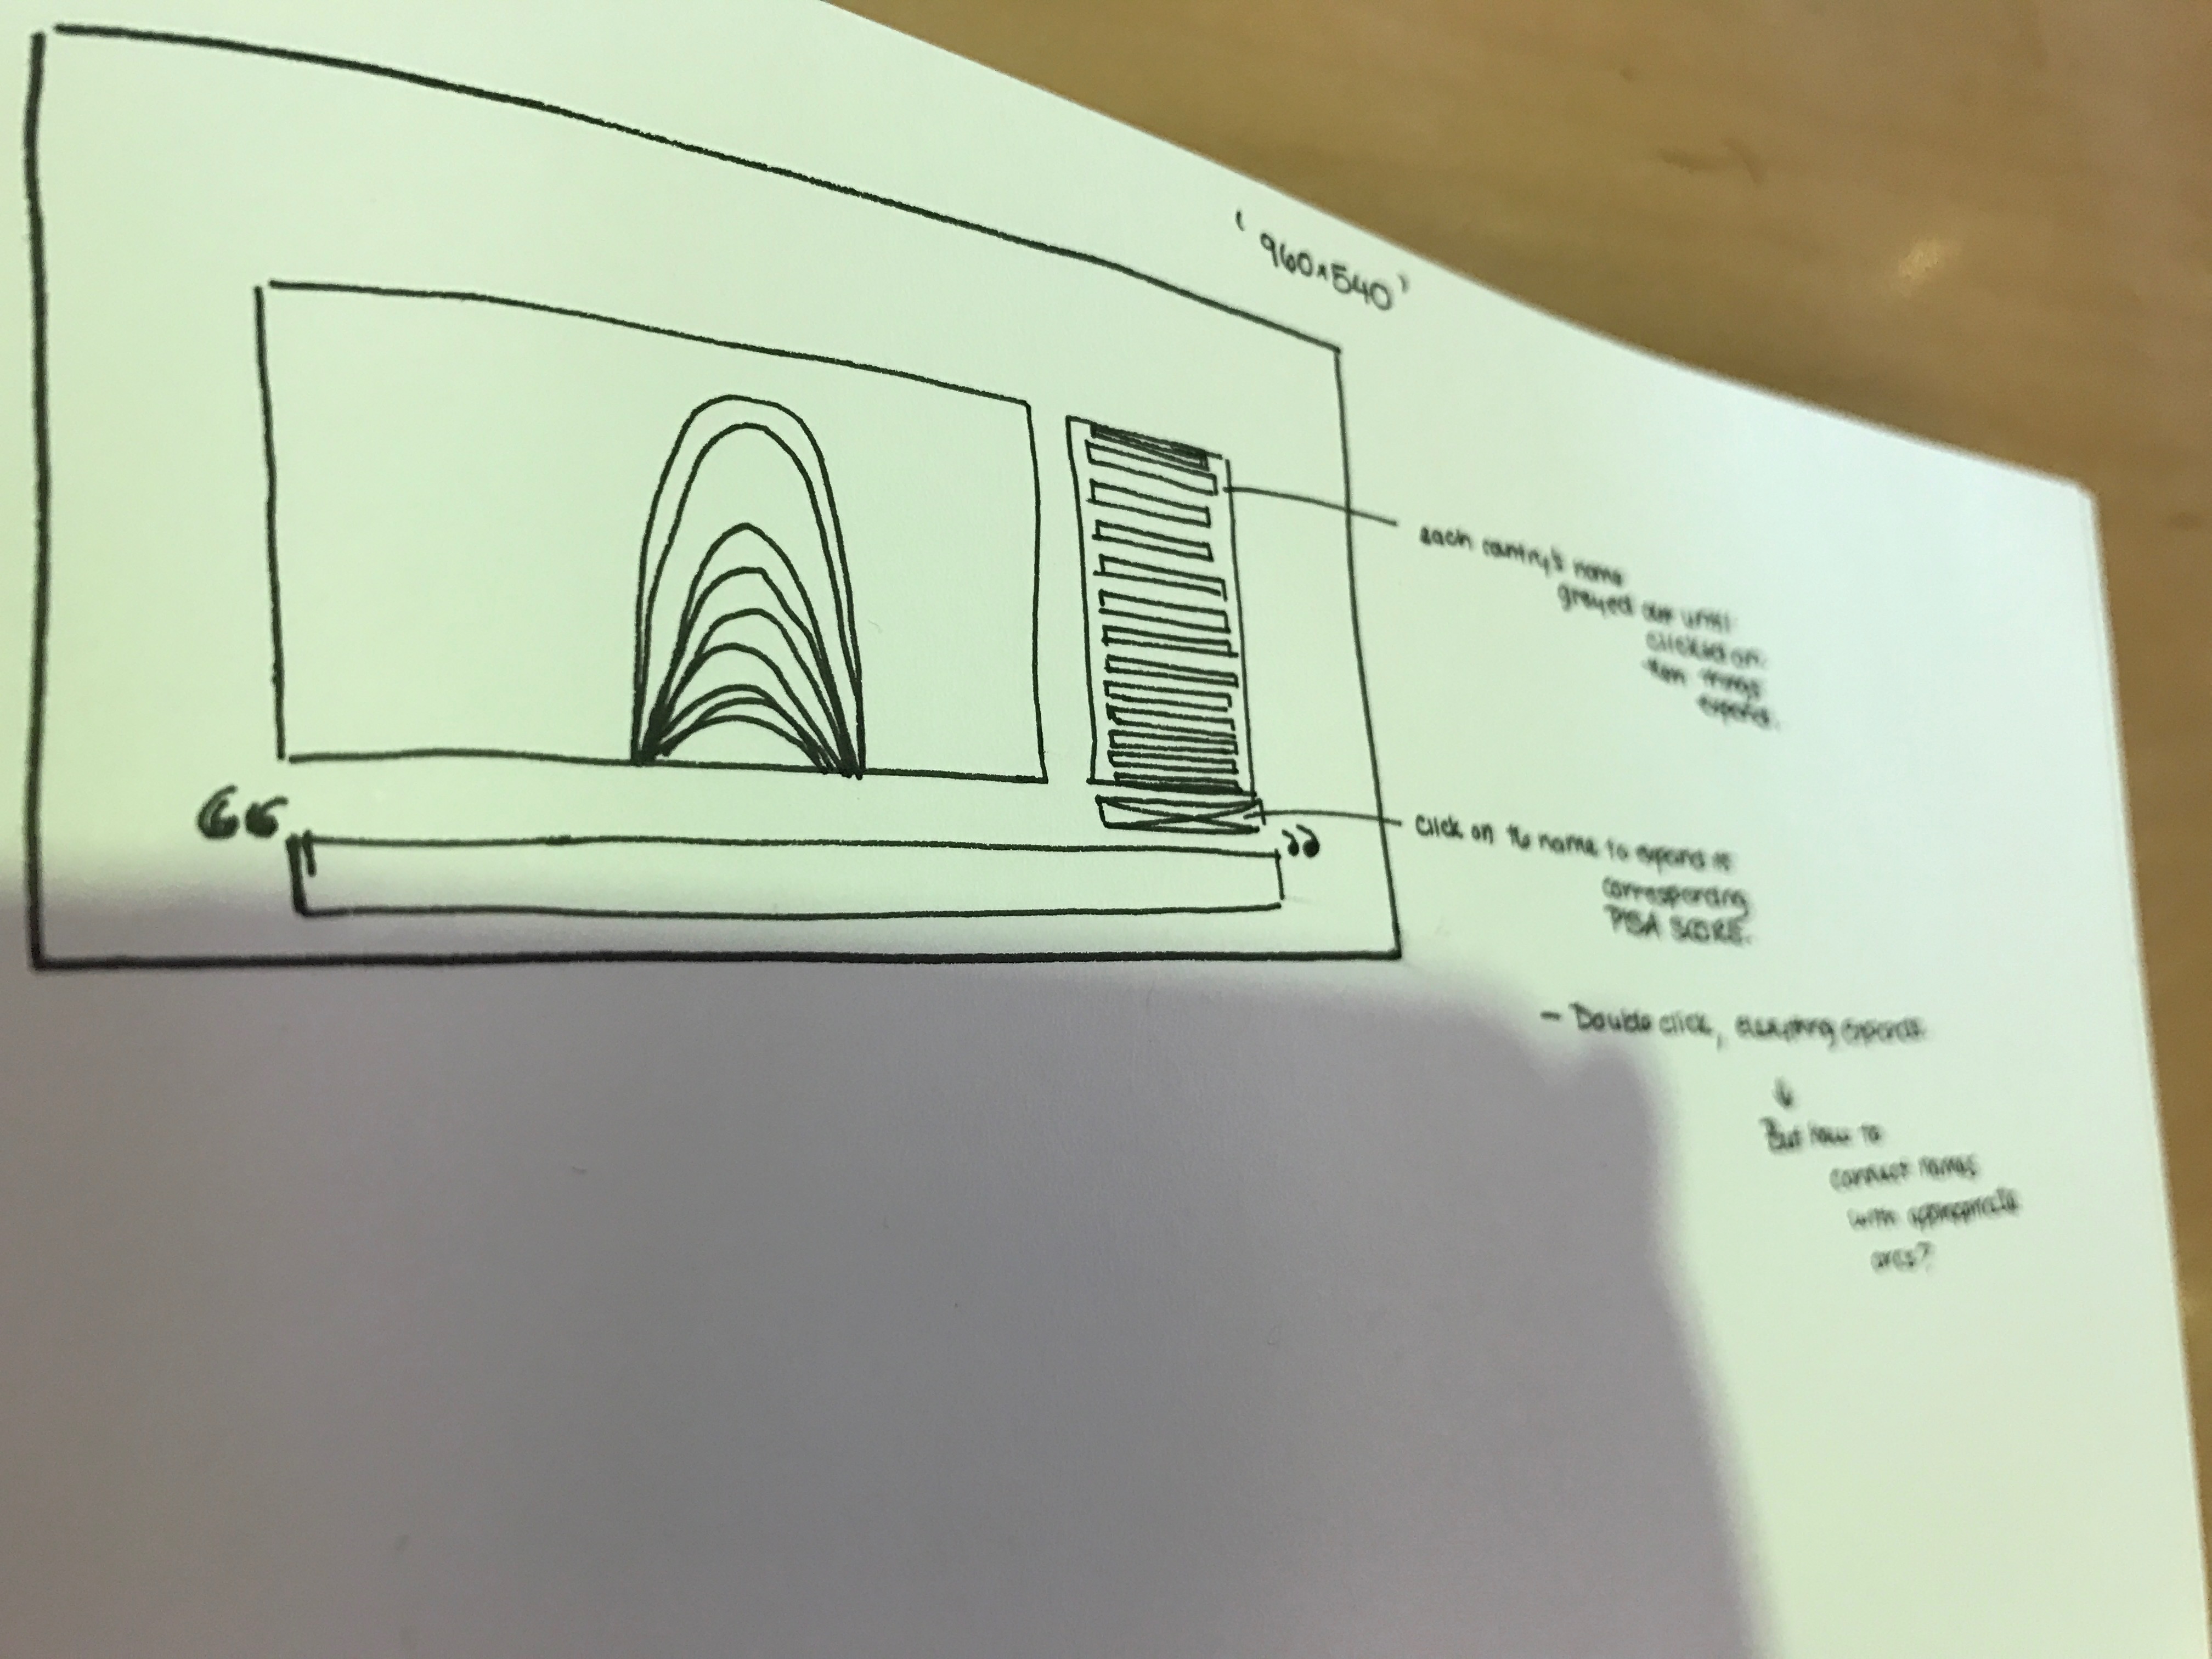 (960x540)
each country's name
grayed out until
clicked on.
then things
expand.
““
””
Click on the name to expand its
corresponding
PISA SCORE.
- Double click, everything expands
↓
But how to
connect names
with appropriate
arcs?